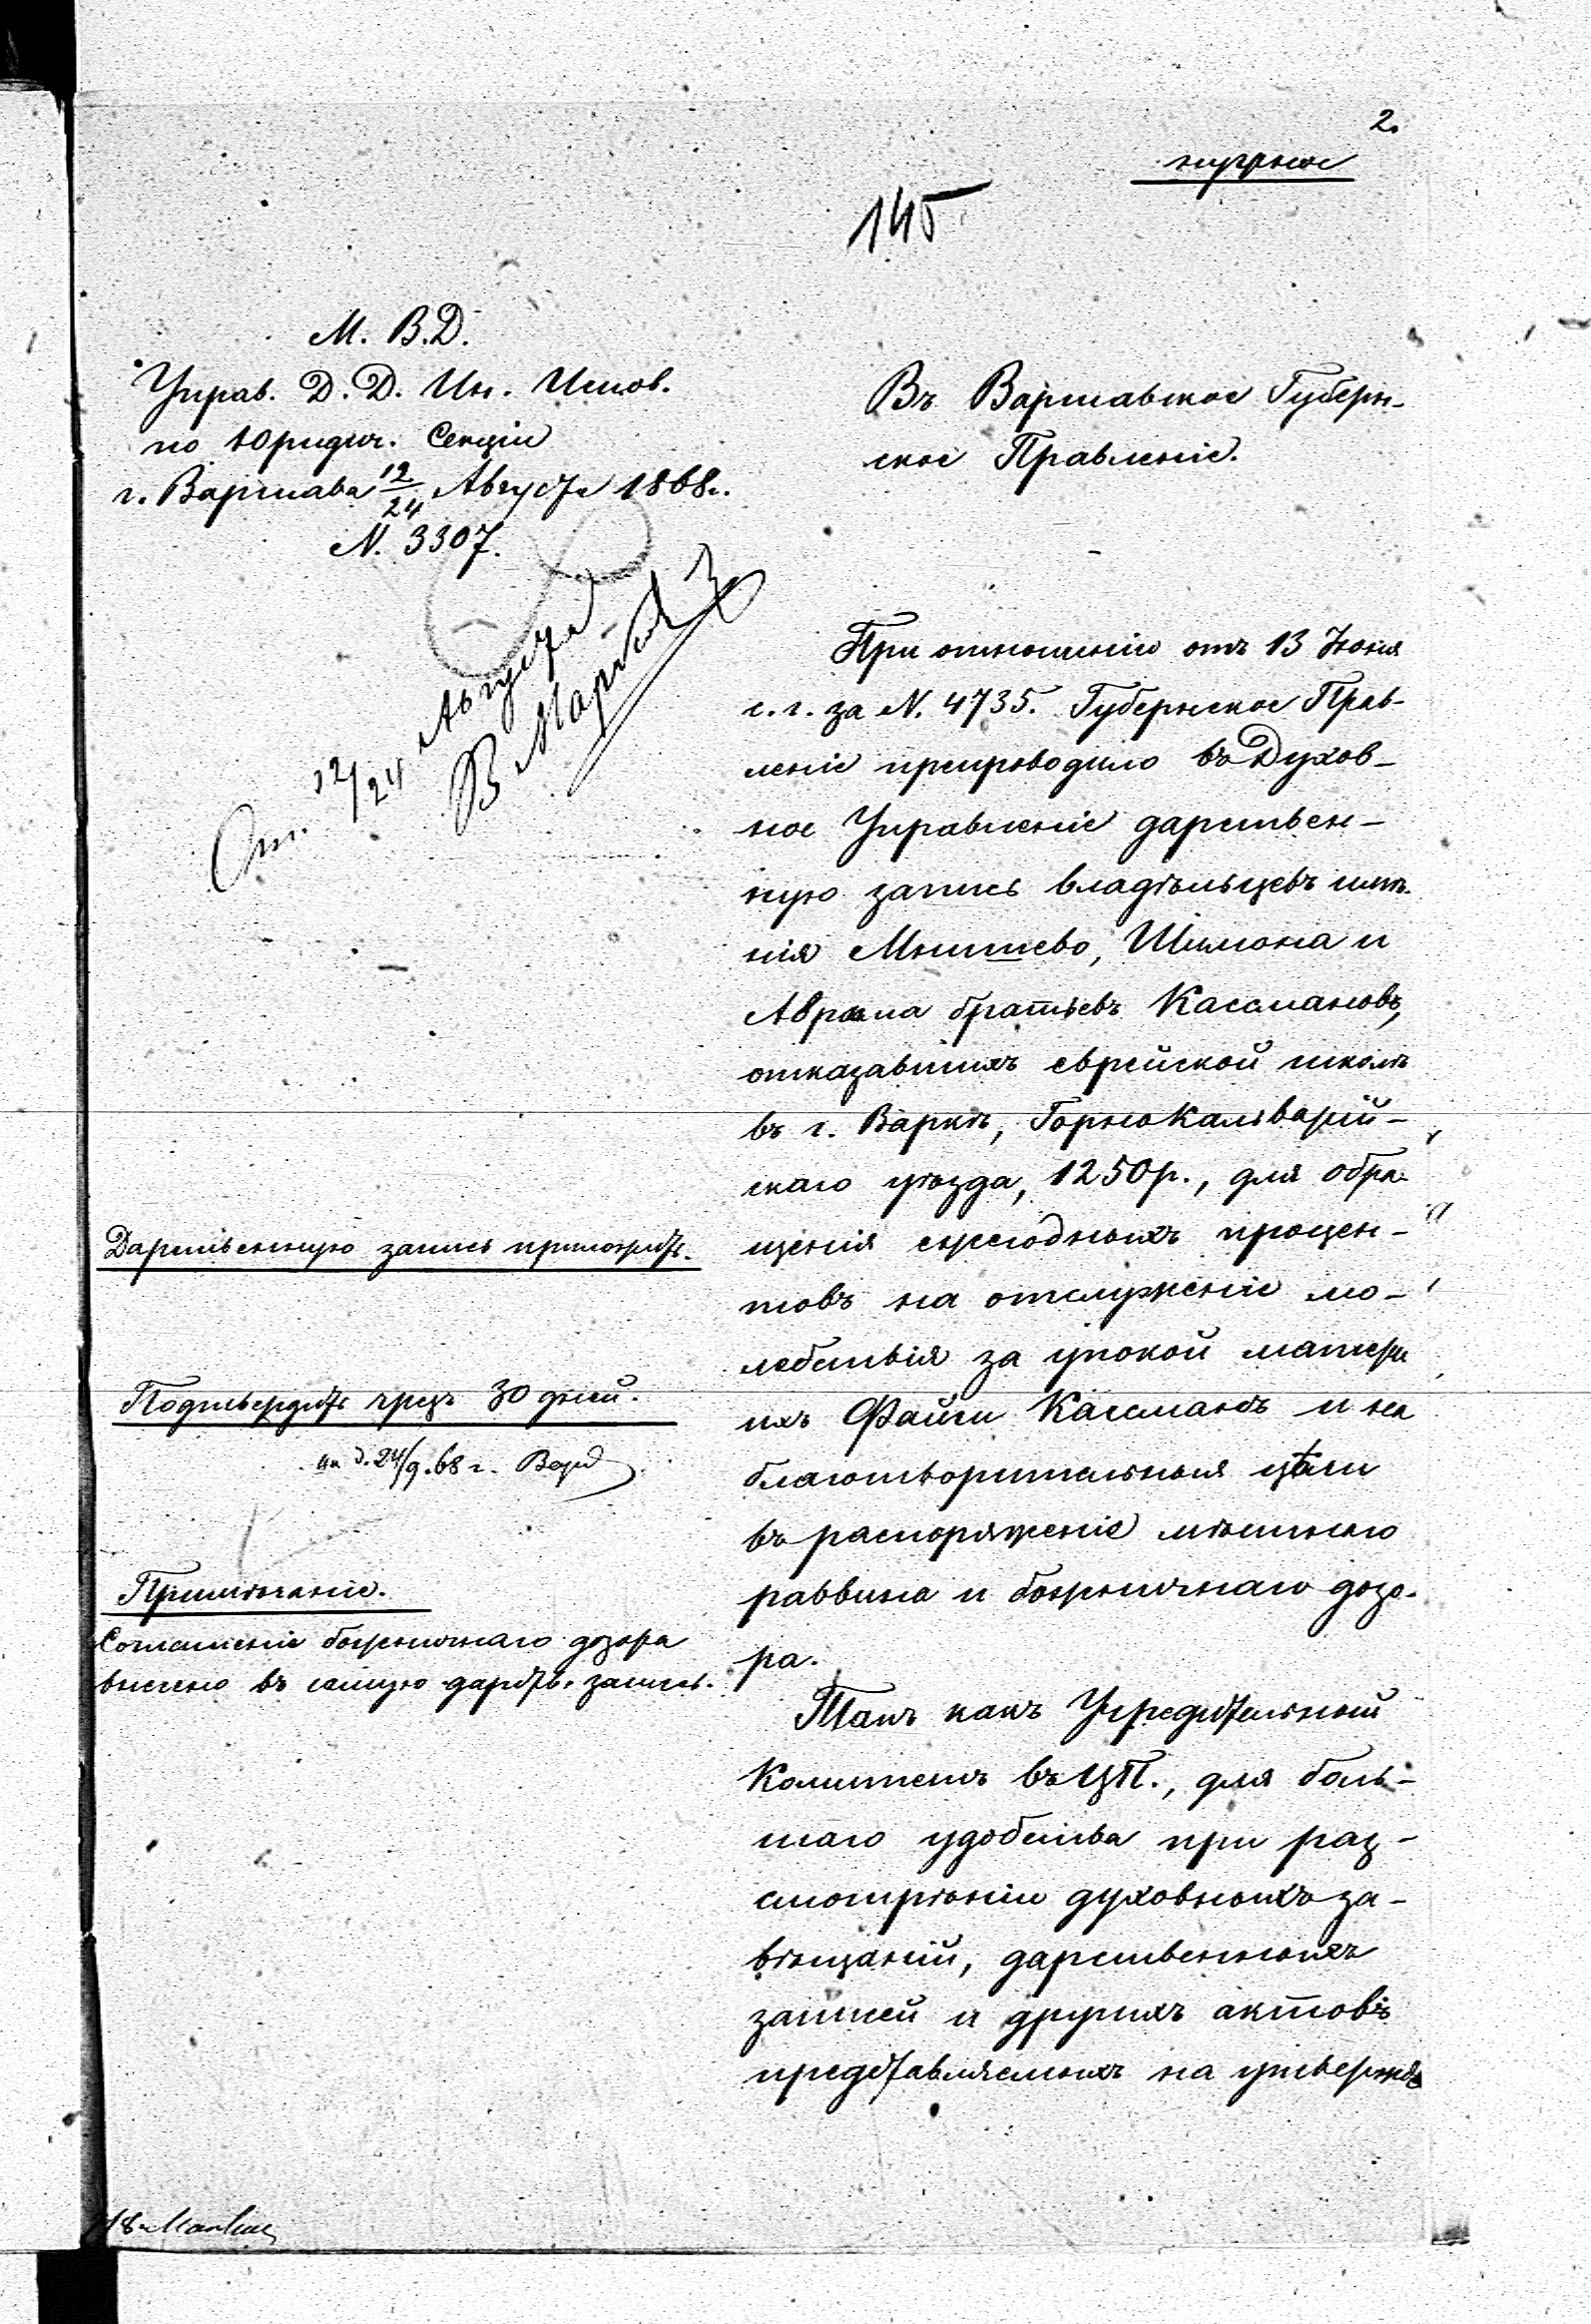 2.
нужное
145
М. В. Д.
Управ. Д. Д. Ин. Испов.
по Юридич. Секціи
г. Варшава 12/24 Августа 1868 г.
N. 3307.
Въ Варшавское Губерн-
ское Правленіе.
От. 12/24 Августа
При отношеніи отъ 13 Іюня
с. г. за N. 4735. Губернское Прав-
леніе препроводило въ Духов-
ное Управленіе дарствен-
ную запись владѣльцевъ имѣ-
нія Мнишево, Шимона и
Абрама братьевъ Кассмановъ,
отказавшихъ еврейской школѣ
въ г. Варкѣ, Горнокальварій-
скаго уѣзда, 1250 р., для обра-
щенія ежегодныхъ процен-
товъ на отслуженіе мо-
лебствія за упокой матери
ихъ Файги Кассманъ и на
благотворительныя цѣли
въ распоряженіе мѣстнаго
раввина и божничнаго дозо-
ра.
Такъ какъ Учредительный
Комитетъ въ ЦП., для боль-
шаго удобства при раз-
смотрѣніи духовныхъ за-
вѣщаній, дарственныхъ
записей и другихъ актовъ
представляемыхъ на утвержд
Дарственную запись приложить.
Подтвердить чрезъ 30 дней.
на д. 24/9. 68 г.
Примѣчаніе.
Соглашеніе божничнаго дозора
внесено въ самую дарств. запись.